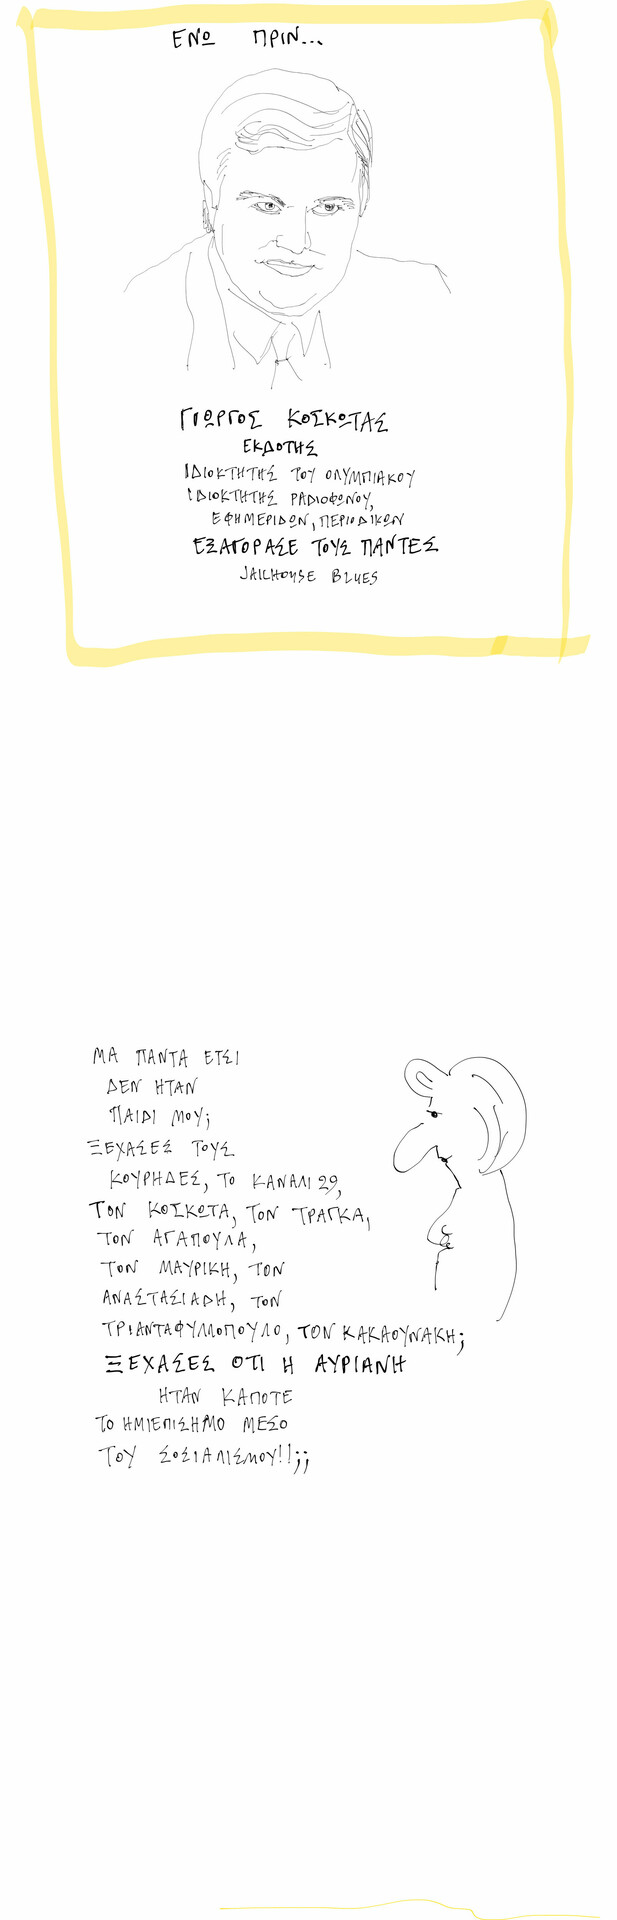 ΕΝΩ ΠΡΙΝ...
ΓΙΩΡΓΟΣ ΚΟΣΚΩΤΑΣ
ΕΚΔΟΤΗΣ
ΙΔΙΟΚΤΗΤΗΣ ΤΟΥ ΟΛΥΜΠΙΑΚΟΥ
ΙΔΙΟΚΤΗΤΗΣ ΡΑΔΙΟΦΩΝΟΥ,
ΕΦΗΜΕΡΙΔΩΝ, ΠΕΡΙΟΔΙΚΩΝ
ΕΞΑΓΟΡΑΣΕ ΤΟΥΣ ΠΑΝΤΕΣ
JAILHOUSE BLUES
ΜΑ ΠΑΝΤΑ ΕΤΣΙ
ΔΕΝ ΗΤΑΝ
ΠΑΙΔΙ ΜΟΥ;
ΞΕΧΑΣΕΣ ΤΟΥΣ
ΚΟΥΡΗΔΕΣ, ΤΟ ΚΑΝΑΛΙ 29,
ΤΟΝ ΚΟΣΚΩΤΑ, ΤΟΝ ΤΡΑΓΚΑ,
ΤΟΝ ΑΓΑΠΟΥΛΑ,
ΤΟΝ ΜΑΥΡΙΚΗ, ΤΟΝ
ΑΝΑΣΤΑΣΙΑΔΗ, ΤΟΝ
ΤΡΙΑΝΤΑΦΥΛΛΟΠΟΥΛΟ, ΤΟΝ ΚΑΚΑΟΥΝΑΚΗ;
ΞΕΧΑΣΕΣ ΟΤΙ Η ΑΥΡΙΑΝΗ
ΗΤΑΝ ΚΑΠΟΤΕ
ΤΟ ΗΜΙΕΠΙΣΗΜΟ ΜΕΣΟ
ΤΟΥ ΣΟΣΙΑΛΙΣΜΟΥ!!;;